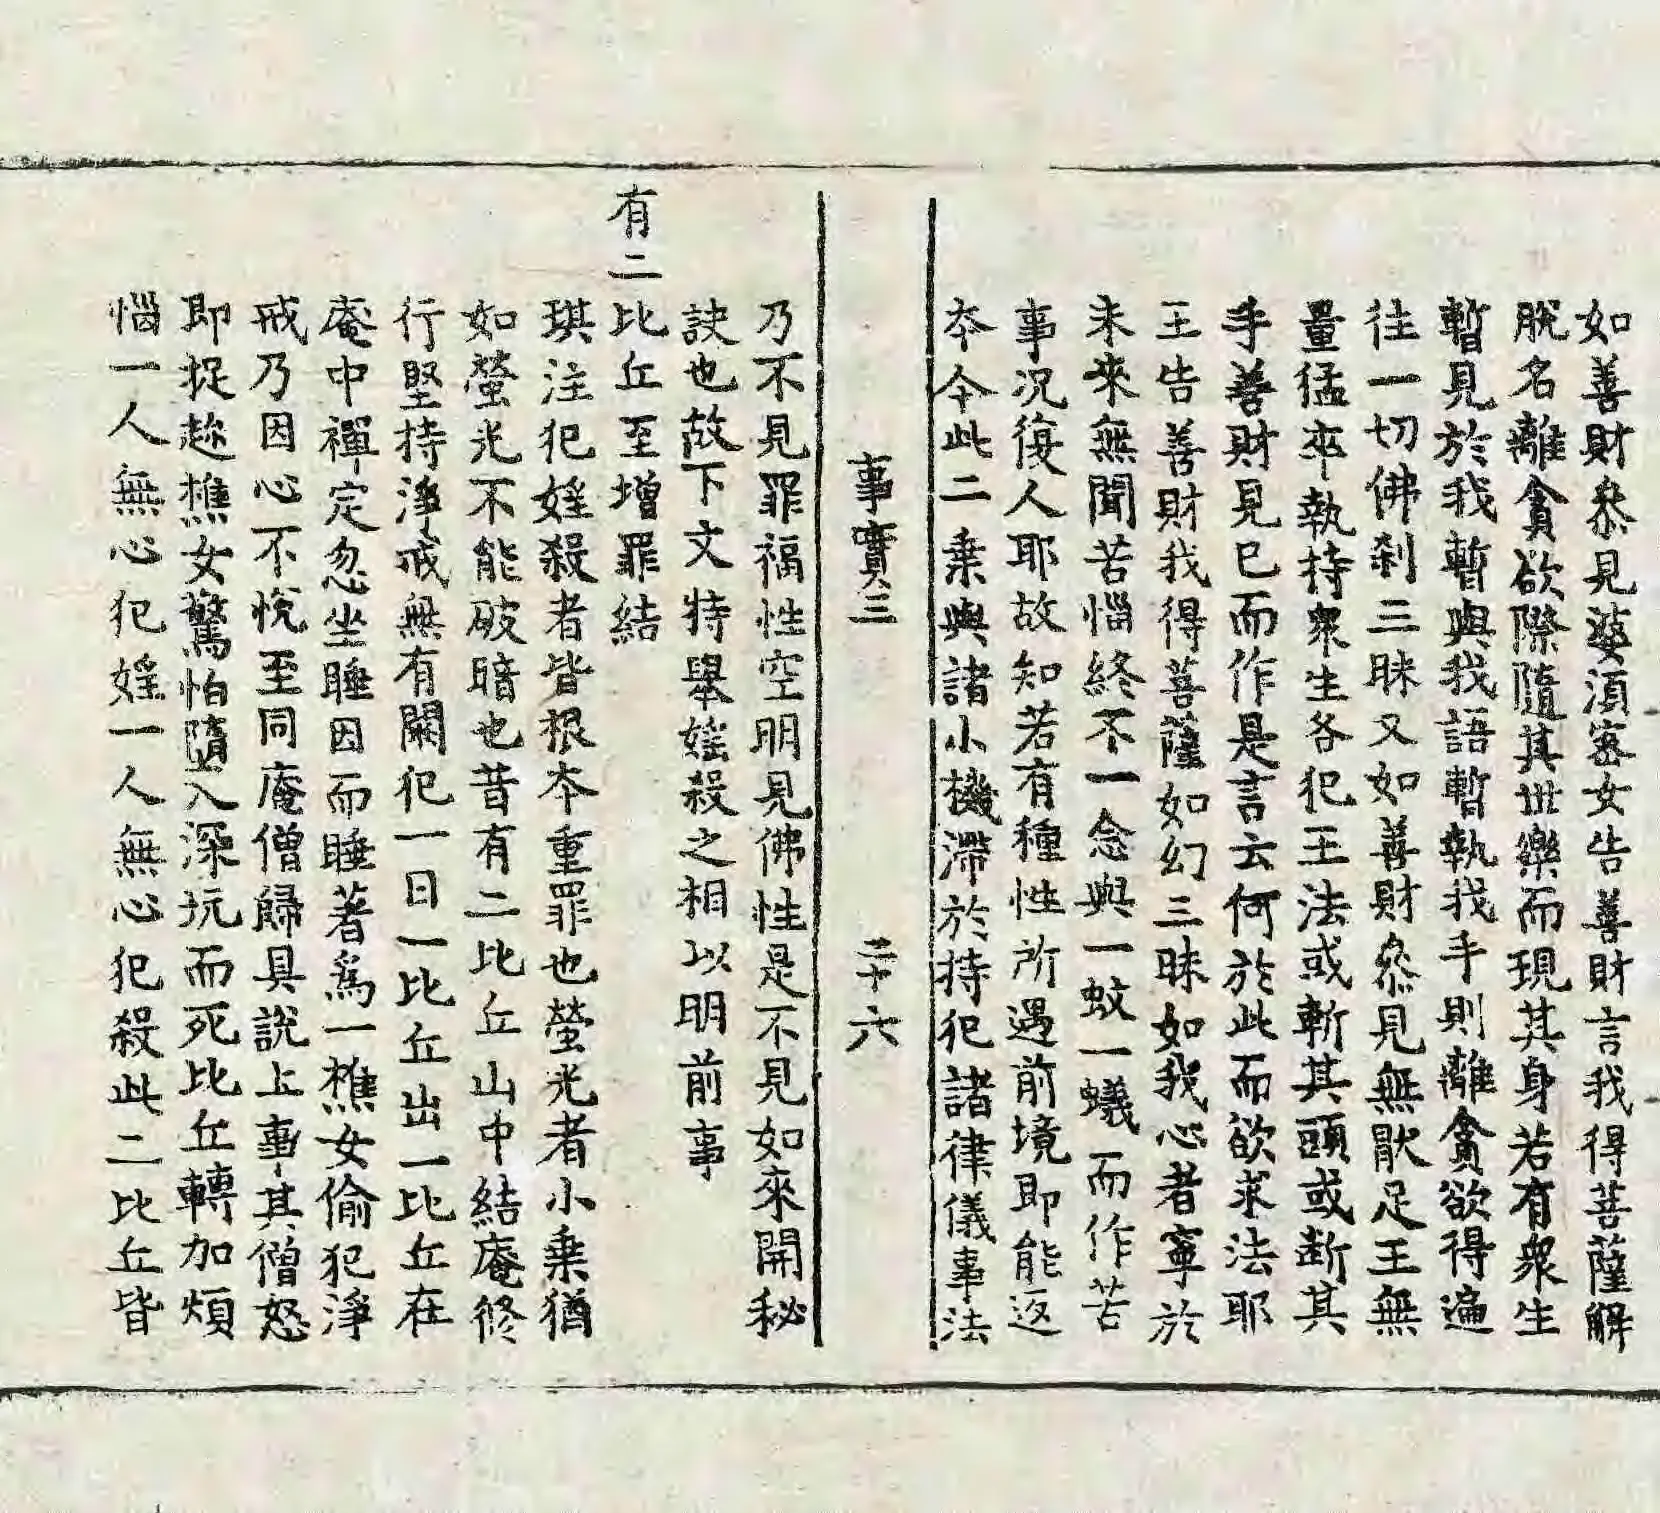 如善財叅見婆須密女告善財言我得菩薩解
脫名離貪欲際隨其世樂而現其身若有衆生
暫見於我暫與我語暫執我手則離貪欲得遍
往一切佛刹三昧又如善財叅見無厭足王無
量猛卒執持衆生各犯王法或斬其頭或断其
手善財見已而作是言云何於此而欲求法耶
王告善財我得菩薩如幻三昧如我心者寧於
未來無聞苦惱終不一念與一蚊一蟻而作苦
事况復人耶故知若有種性所遇前境即能返
夲今此二乗與諸小機滯於持犯諸律儀事法
事實三 二十六
乃不見罪福性空明見佛性是不見如來開秘
訣也故下文特舉婬殺之相以明前事
有二比丘至增罪結
琪注犯婬殺者皆根夲重罪也螢光者小乗猶
如螢光不能破暗也昔有二比丘山中結庵修
行堅持淨戒無有闕犯一日一比丘出一比丘在
庵中禪定忽坐睡因而睡著爲一樵女偷犯淨
戒乃因心不悅至同庵僧歸具說上事其僧怒
即捉趂樵女驚怕墮入深坑而死比丘轉加煩
惱一人無心犯婬一人無心犯殺此二比丘皆